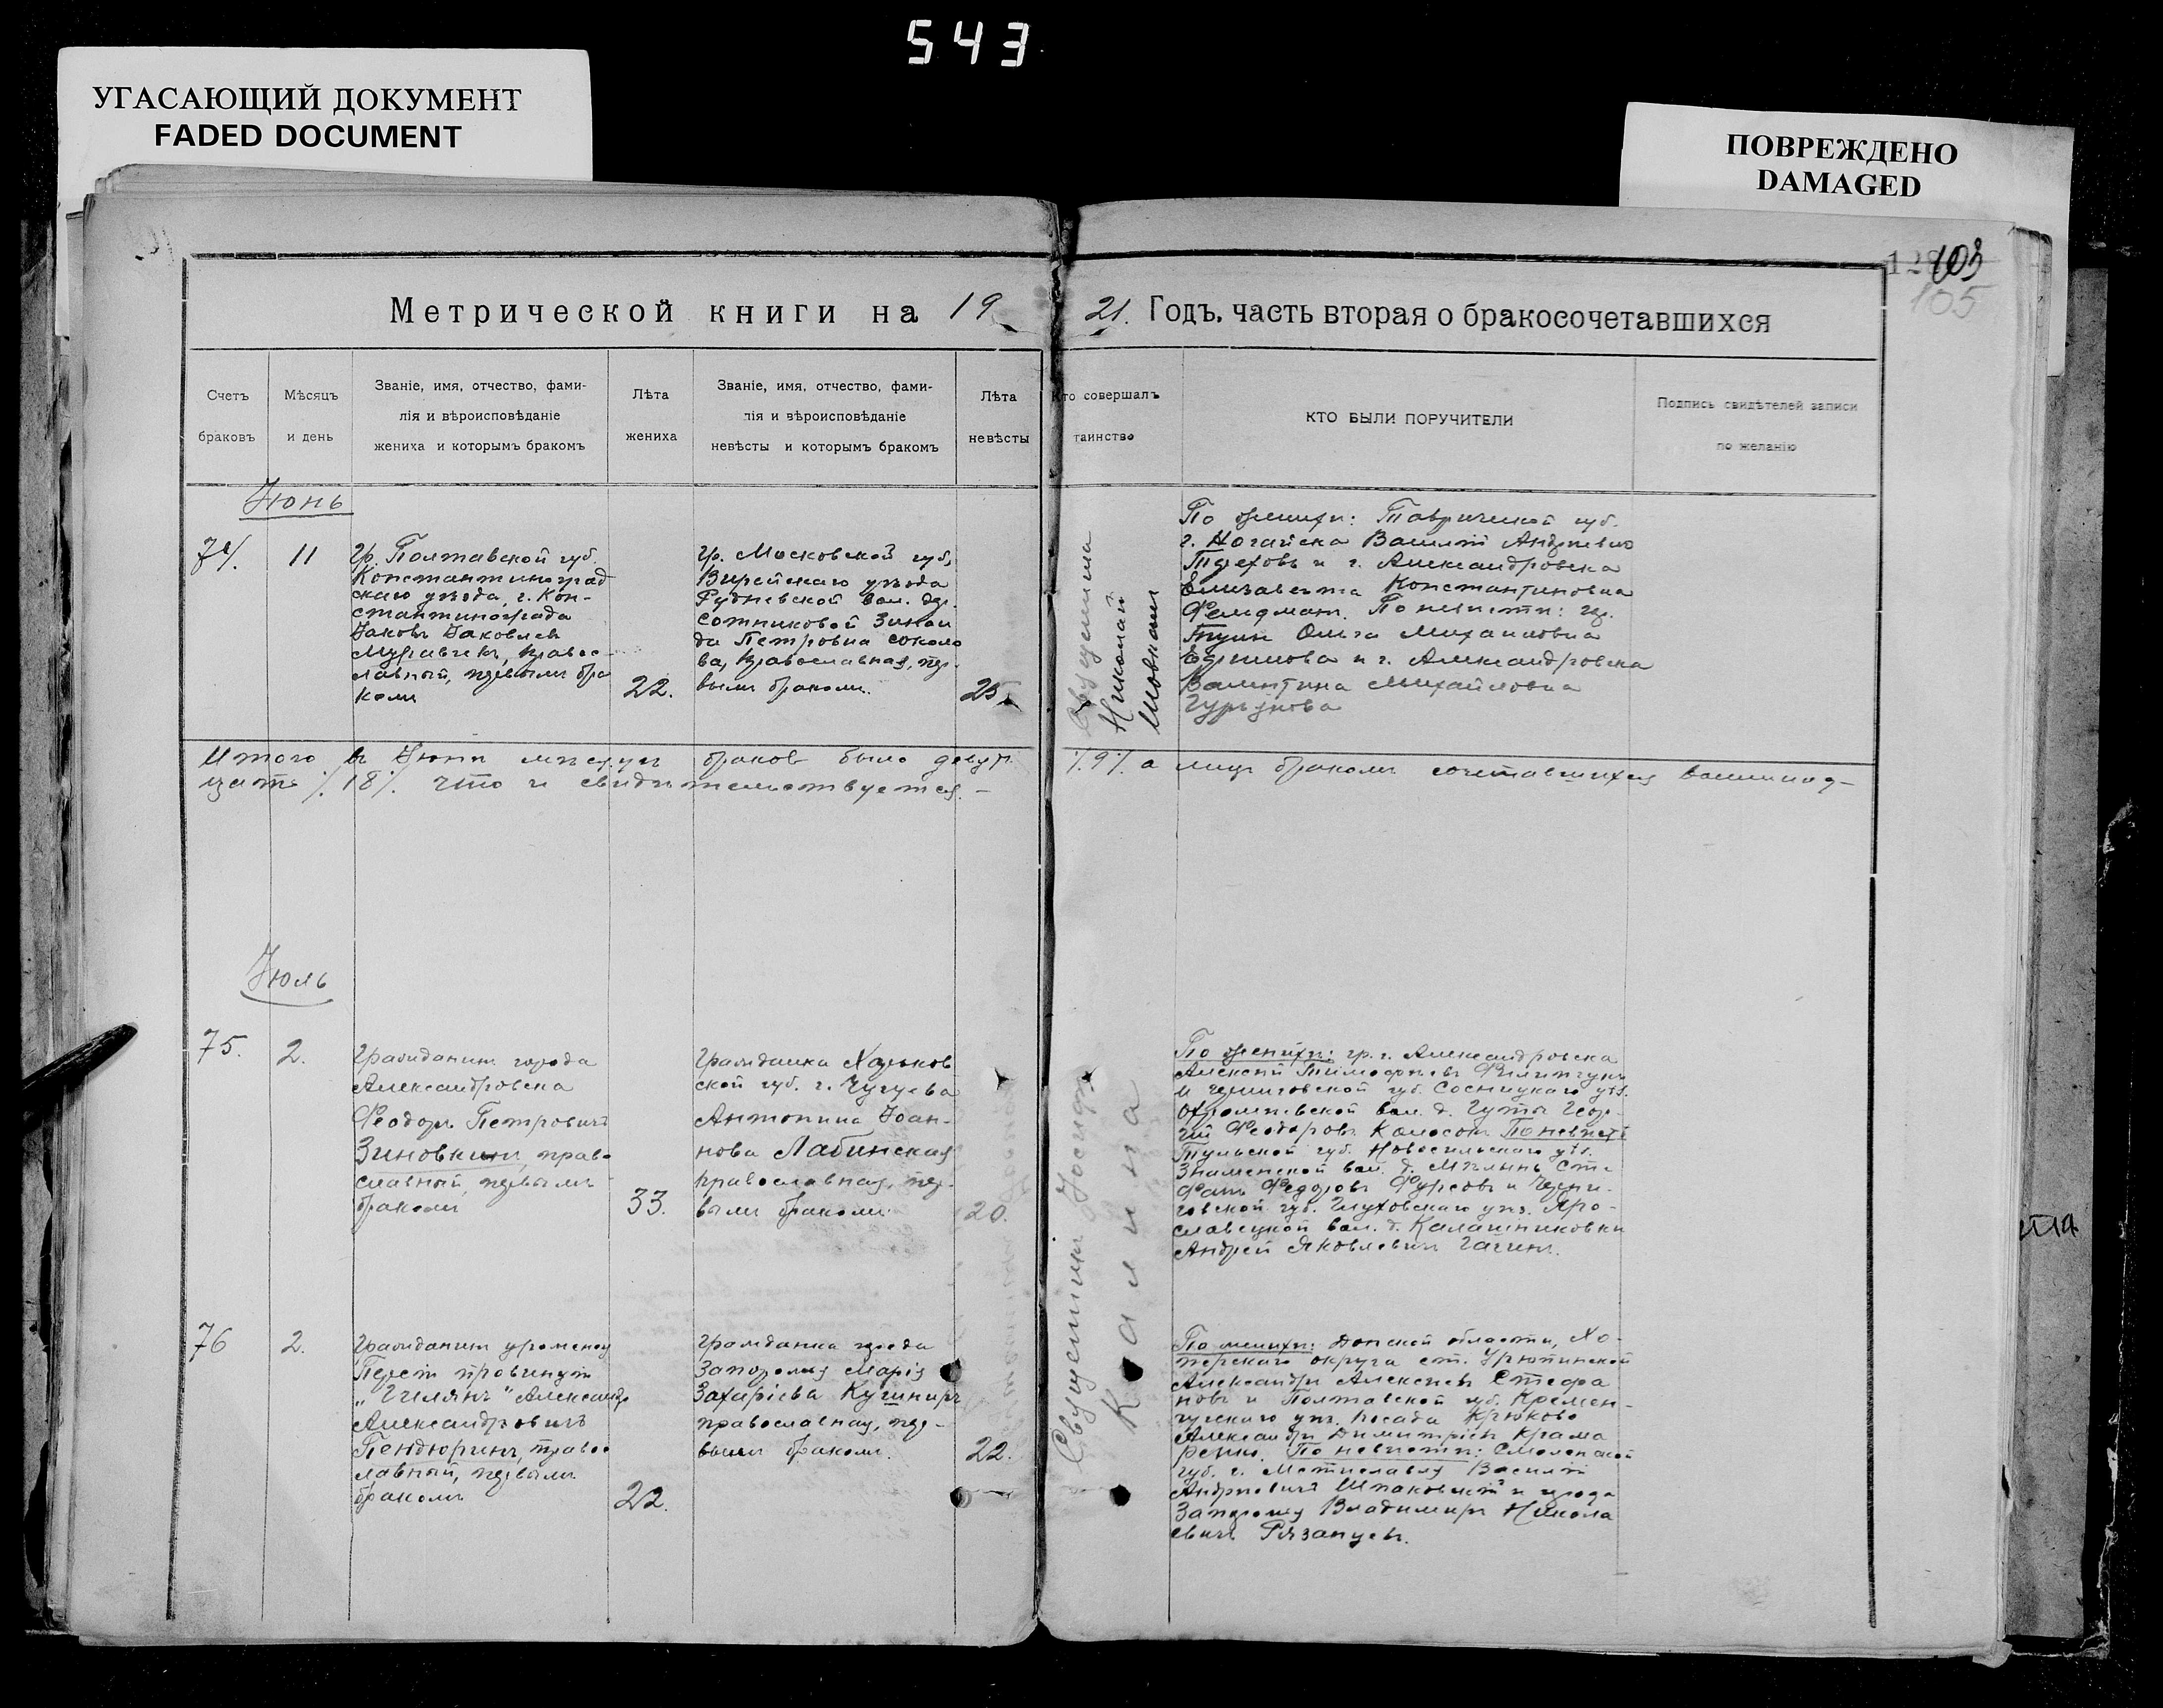 543
УГАСАЮЩИЙ ДОКУМЕНТ
FADED DOCUMENT
ПОВРЕЖДЕНО
DAMAGED
103
105
Метрической книги на 19
21. Годъ. часть вторая о бракосочетавшихся
Счетъ
браковъ
Мѣсяцъ
и день
Званіе, имя, отчество, фами-
лія и вѣроисповѣданіе
жениха и которымъ бракомъ
Лѣта
жениха
Званіе, имя, отчество, фами-
лія и вѣроисповѣданіе
невѣсты и которымъ бракомъ
Лѣта
невѣсты
Кто совершалъ
таинство
КТО БЫЛИ ПОРУЧИТЕЛИ
Подпись свидѣтелей записи
по желанію
Іюнь
74.
11
Гр. Полтавской губ.
Константиноград
скаго уѣзда, г. Кон-
стантинограда
Іаковъ Іаковлев
Муравчекъ, право-
славный, первымъ бра
комъ
22.
Гр. Московской губ,
Верейскаго уѣзда
Рудневской вол. дер.
Сотниковой Зинаи
да Петровна Соколо
ва, православная, пер-
вымъ бракомъ.
25
Священникъ
Николай
По женихѣ: Таврической губ.
г. Ногайска Василій Андреевич
Тереховъ и г. Александровска
Елизавета Константиновна
Фелдман. По невѣстѣ: гр.
Ольга Михаиловна
Ефимова и г. Александровска
Валентина Михайловна
Итого въ Іюнѣ мѣсяцѣ браков было девять
/.9/. а лицъ бракомъ сочетавшихся восемнад-
цать /.18/. Что и свидѣтельствуется. -
Іюль
75.
2.
Гражданинъ города
Александровска
Феодоръ Петровичъ
Зиновкин, прав-
славный, первымъ
бракомъ
33.
Гражданка Харьков
ской губ. г. Чугуева
Антонина Іоан-
нова Лабинская
православная, пер-
вымъ бракомъ.
20.
Священникъ Іосифъ
Калина
По женихѣ: гр. г. Александровска
Алексѣй Тимофеевъ
и Черниговской губ. Сосницкаго уѣз.
вол. д. Гуты Геор-
гій Феодоровъ Колосокъ По невѣстѣ
Тульской губ. Новосильскаго уѣз.
Знаменской вол. д. Сте-
фанъ Федоровъ Фурсовъ и Черни-
говской губ. Глуховскаго уѣз. Яро-
славецкой вол. д. Калашниковки
Андрей Яковлевичъ
76
2.
Гражданинъ уроменец
Персіи провинціи
„Гилянъ" Александр
Александровичъ
Пендюринъ, право-
славный, первымъ
бракомъ
22.
Гражданка города
Запорожья Марія
Захаріева Кушниръ
православная, пер-
вымъ бракомъ.
22.
По женихѣ: Донской области, Хо-
перскаго округа ст. Урюпинской
Александръ Алексѣевъ Стефа
новъ и Полтавской губ. Кремен-
чугскаго уѣз. посада Крюково
Александръ Димитріевъ Крама
ренко. По невѣстѣ: Смоленской
губ. г. Мстиславля Василій
Андреевичъ Шпаковскій и города
Запорожья Владимиръ Никола
евичъ Рязанцевъ.